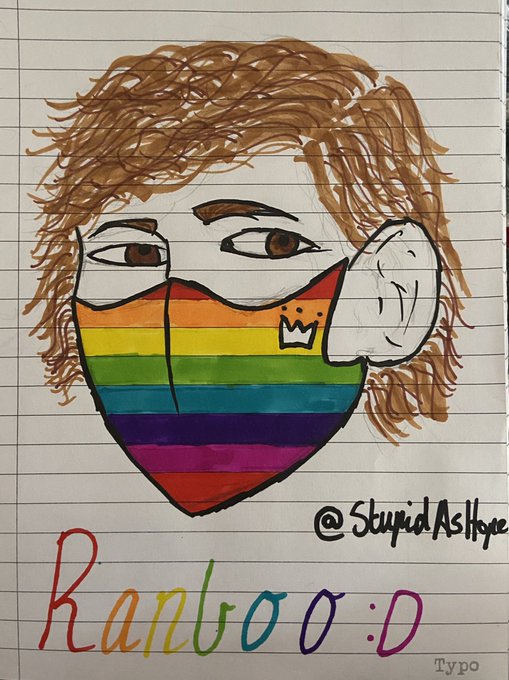 @StupidAsHope
Ranboo :D
Typo